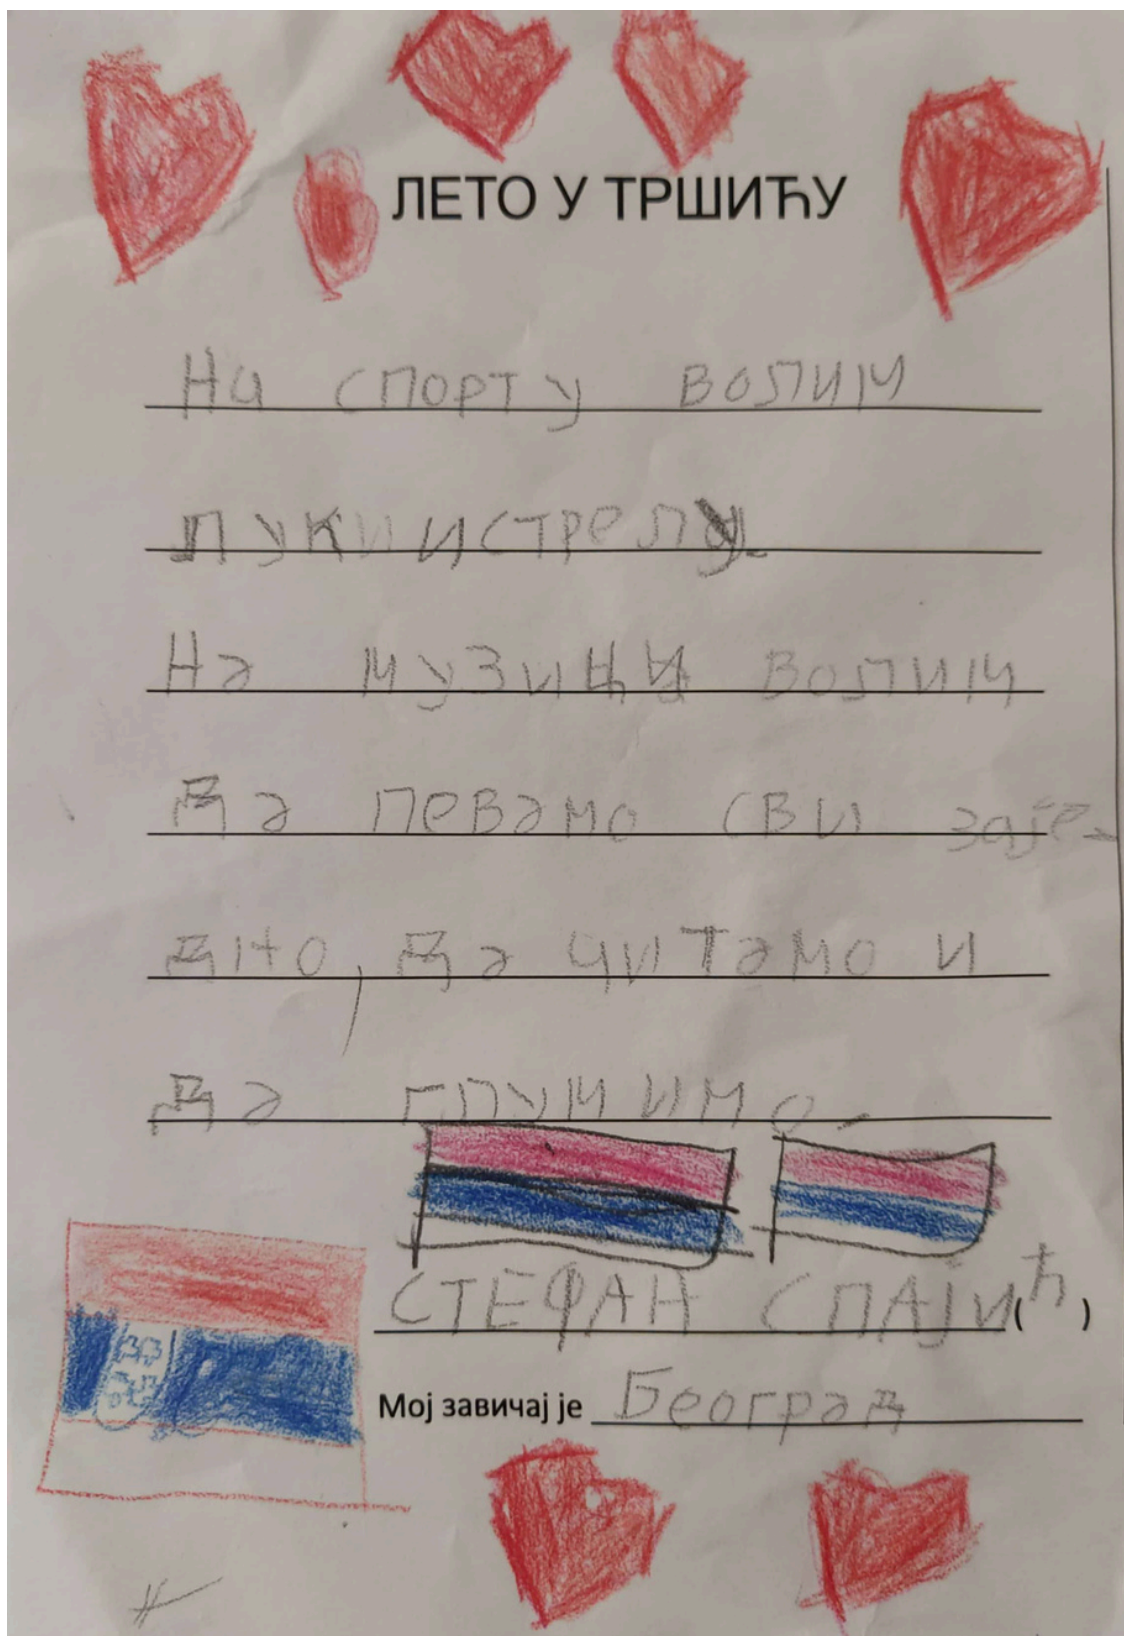 ЛЕТО У ТРШИЋУ
На спорту волим
лук и и стрелу.
На музици волим
да певамо сви заје-
дно, да читамо и
да глумимо.
СТЕФАН СПАЈИЋ ( )
Мој завичај је Београд